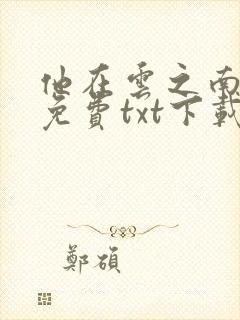 他在雲之南
免費txt下載
鄭碩